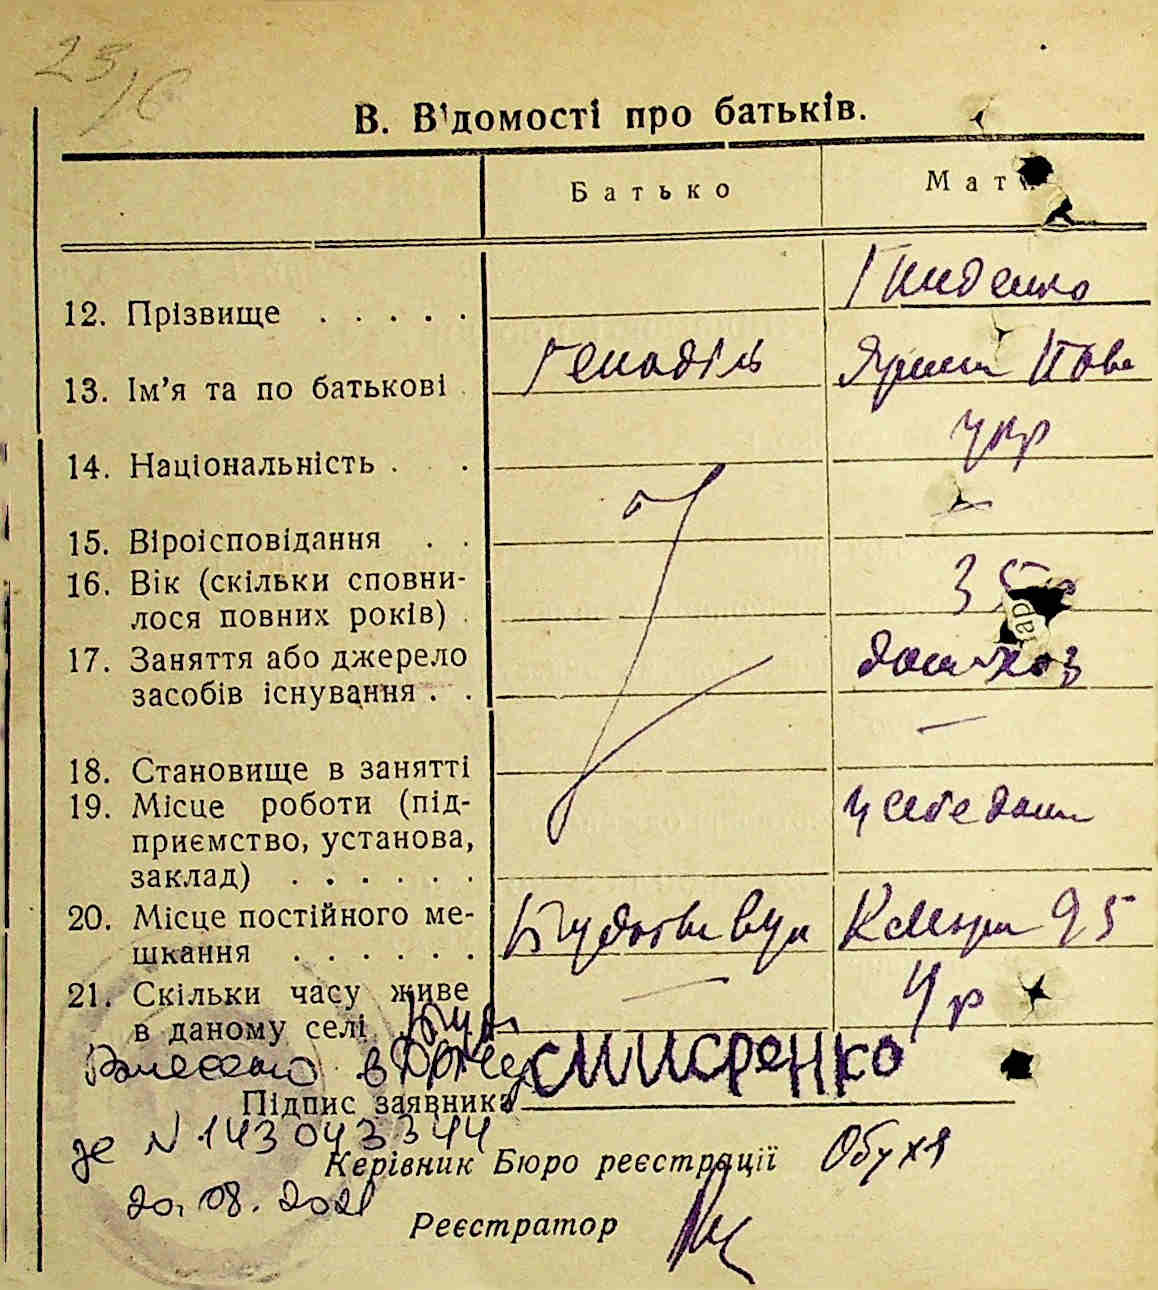 25/с
В. Відомості про батьків.
Батько Мати
12. Прізвище . . . . . Гниденко
13. Ім'я та по батькові . Генадій
14. Національність . . . укр
15. Віроісповідання . . —
16. Вік (скільки сповни-
лося повних років) . 35
17. Заняття або джерело
засобів існування . . дом хоз
18. Становище в занятті —
19. Місце роботи (під-
приємство, установа,
заклад) . . . . . . у себе дома
20. Місце постійного ме-
шкання . . . . . . 95
21. Скільки часу живе
в даному селі — 4 р
Внесено в
Підпис заявника
№ 143043344
Керівник Бюро реєстрації
20.08.2021
Реєстратор